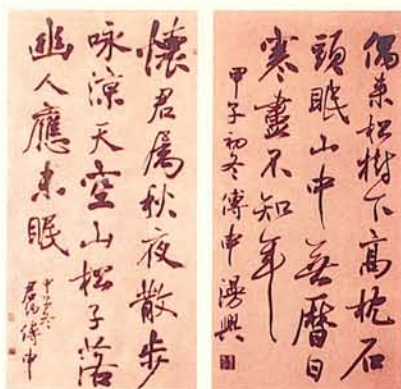 偶来松樹下高枕石
頭眠山中無曆日
寒盡不知年
甲子初冬傅申漫興
懷君屬秋夜散步
咏涼天空山松子落
幽人應未眠
甲子冬
傅申